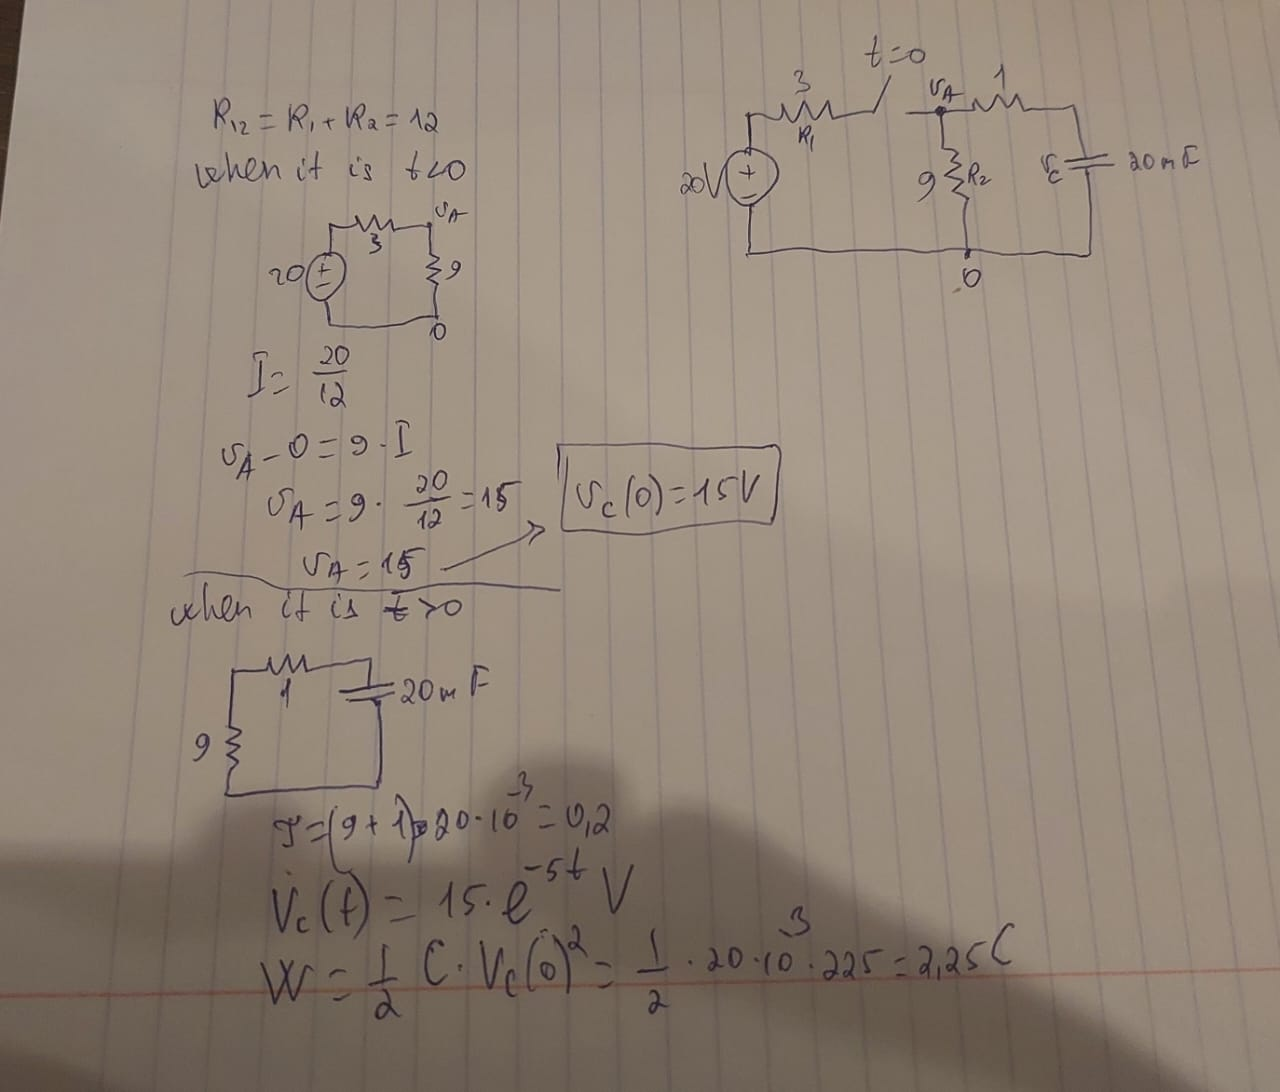 R₁₂ = R₁ + R₂ = 12
when it is t<0
3
υA
20
+
−
9
0
I = 20/12
υA - 0 = 9 · I
υA = 9 · 20/12 = 15
υA = 15
υc(0) = 15V
when it is t>0
1
20 m F
9
τ = (9+1) · 20 · 10⁻³ = 0,2
Vc(t) = 15 · e⁻⁵ᵗ V
W = 1/2 C · Vc(0)² = 1/2 · 20 · 10⁻³ · 225 = 2,25 C
t=0
3
R₁
υA
1
20V
+
−
9
R₂
υc
20 m F
0